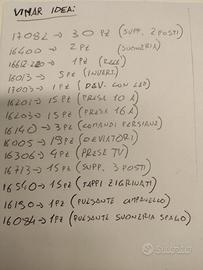 VIMAR IDEA:
17082 → 30 PZ (SUPP. 2 POSTI)
16400 → 2 PZ (SUONERIA)
1PZ (RELÈ)
16013 → 5PZ (INVERT)
17003 → 1PZ (DEV. CON LED)
16201 → 15 PZ (PRESE 10 A)
16203 → 15 PZ (PRESE 16A)
16140 → 3PZ (COMANDI PERSIANE)
16005 → 19PZ (DEVIATORI)
16306 → 4PZ (PRESE TV)
16713 → 15PZ (SUPP. 3 POSTI)
16540 → 15PZ (TAPPI ZIGRINATI)
16150 → 1PZ (PULSANTE CAMPANELLO)
16084 → 1PZ (PULSANTE SUONERIA SPAGO)
subito